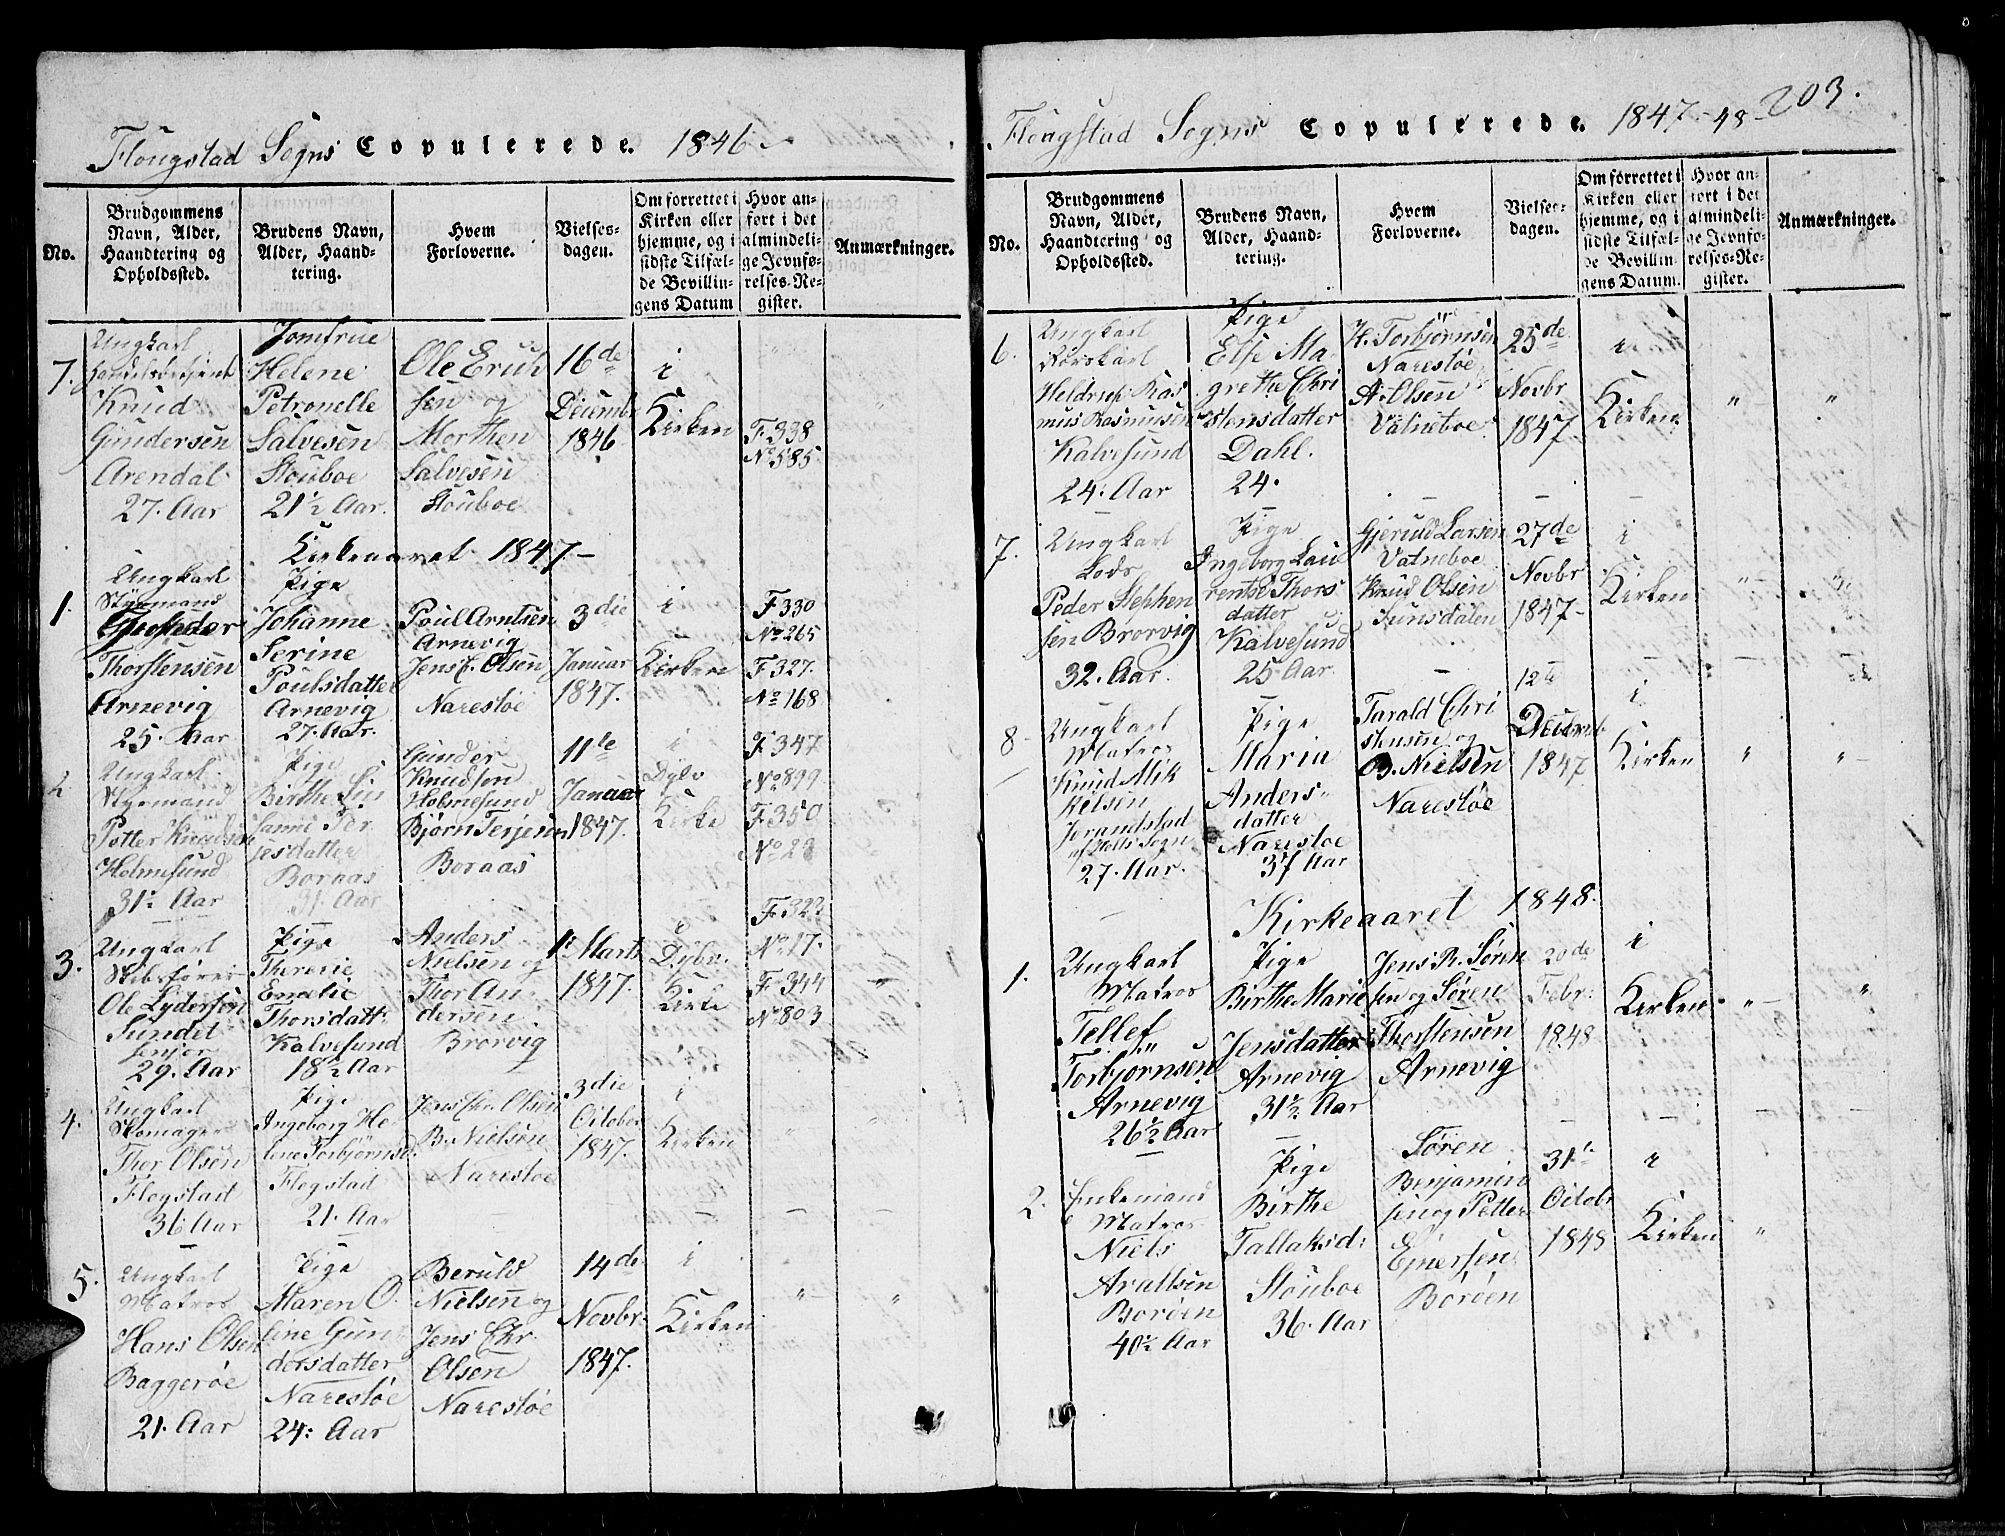 Flougstad Sogns Copulerede. 1846
No.
Brudgommens Navn, Alder, Haandtering og Opholdssted.
Brudens Navn, Alder, Haandtering.
Hvem Forloverne.
Vielsesdagen.
Om forrettet i Kirken eller hjemme, og i sidste Tilfælde Bevillingens Datum
Hvor anført i det almindelige Jevnførelses-Register.
Anmærkninger.
7.
Ungkarl
Knud
Gundersen
Arendal
27. Aar
Jomfrue
Helene
Petronelle
Salvesen
Stouboe
21½ Aar.
Ole Erich
sen og
Morthen
Salvesen
Stouboe
16de
Decembr
1846.
i
Kirken
F. 338
No 585.
Kirkeaaret 1847 –
1.
Ungkarl
Styrmand
Thorstensen
Arnevig
25. Aar
Pige
Johanne
Serine
Poulsdatter
Arnevig
27. Aar.
Poul Arntsen
Arnevig
Jens C. Olsen
Narestöe
3die
Januar
1847.
i
Kirken
F. 330
No 265
F. 327.
No 168
2
Ungkarl
Styrmand
Petter Knudsen
Holmesund
31½ Aar
Pige
Birthe Su
sanne Ter
jesdatter
Boraas
31. Aar
Gunder
Knudsøn
Holmesund
Bjørn Terjesen
Boraas
11te
Januar
1847.
i
Dybv
Kirke
F. 347
No 899.
F. 350
No 23
3.
Ungkarl
Skibsfører
Ole Lydersen
Sundet
29. Aar
Pige
Theresie
Emelie
Thorsdatt:
Kalvesund
18½ Aar
Anders
Nielsen og
Thor An-
dersen
Brorvig
1: Marts
1847.
i
Dybv.
Kirke
F. 323
No 17.
F. 344
No 803
4.
Ungkarl
Skomager
Thor Olsen
Flogstad
36 Aar
Pige
Ingeborg He
lene Torbjørnsd.
Flogstad
21. Aar
Jens Chr. Olsen
B. Nielsen
Narestoe
3die
October
1847.
i
Kirken
5.
Ungkarl
Matros
Hans Olsen
Baggerøe
21. Aar
Pige
Maren O.
line Gun
dersdatter
Narestöe
24: Aar
Beruld
Nielsen og
Jens Chr.
Olsen
Narestöe
14de
Novbr.
1847.
i
Kirken
Flougstad Sogns Copulerede. 1847-48 – 203.
No.
Brudgommens Navn, Alder, Haandtering og Opholdssted.
Brudens Navn, Alder, Haandtering.
Hvem Forloverne.
Vielsesdagen.
Om forrettet i Kirken eller hjemme, og i sidste Tilfælde Bevillingens Datum.
Hvor anført i det almindelige Jevnførelses-Register.
Anmærkninger.
6.
Ungkarl
Heldrup Ras
mus Rasmussen
Kalvesund
24. Aar
Pige
Else Ma-
grethe Chri
stensdatter
Dahl.
24.
K. Torbjørnsen
Narestöe
A. Olsen
Vatneboe
25de
Novbr
1847.
i
Kirken
7.
Ungkarl
Lods
Peder Stephen
sen Brorvig
32. Aar.
Pige
Ingeborg Lau
rentse Thors
datter
Kalvesund
25. Aar.
Gjeruld Larsen
Vatneboe
Knud Olsen
27de
Novbr
1847 –
i
Kirken
8-
Ungkarl
Matros
Knud Mik
kelsen
af Holts Sogn
27. Aar.
Pige
Maria
Anders-
datter
Narestoe
37 Aar
Tarald Chri
stensen og
B. Nielsen
Narestöe
12te
Decemb
1847
i
Kirken
Kirkeaaret 1848.
1.
Ungkarl
Matros
Tellef
Torbjørnsen
Arnevig
26½ Aar
Pige
Birthe Marie
Jensdatter
Arnevig
31½ Aar
Jens R. Søren
sen og Søren
Thorstensen
Arnevig
20de
Febr:
1848
i
Kirken
2.
Enkemand
Matros
Niels
Araltsen
Borøen
40½ Aar
Pige
Birthe
Tallaksd:
Stouboe
36. Aar
Søren
Benjamin
sen og Petter
Ejnersen
Borøen
31te
Octobr
1848
i
Kirken